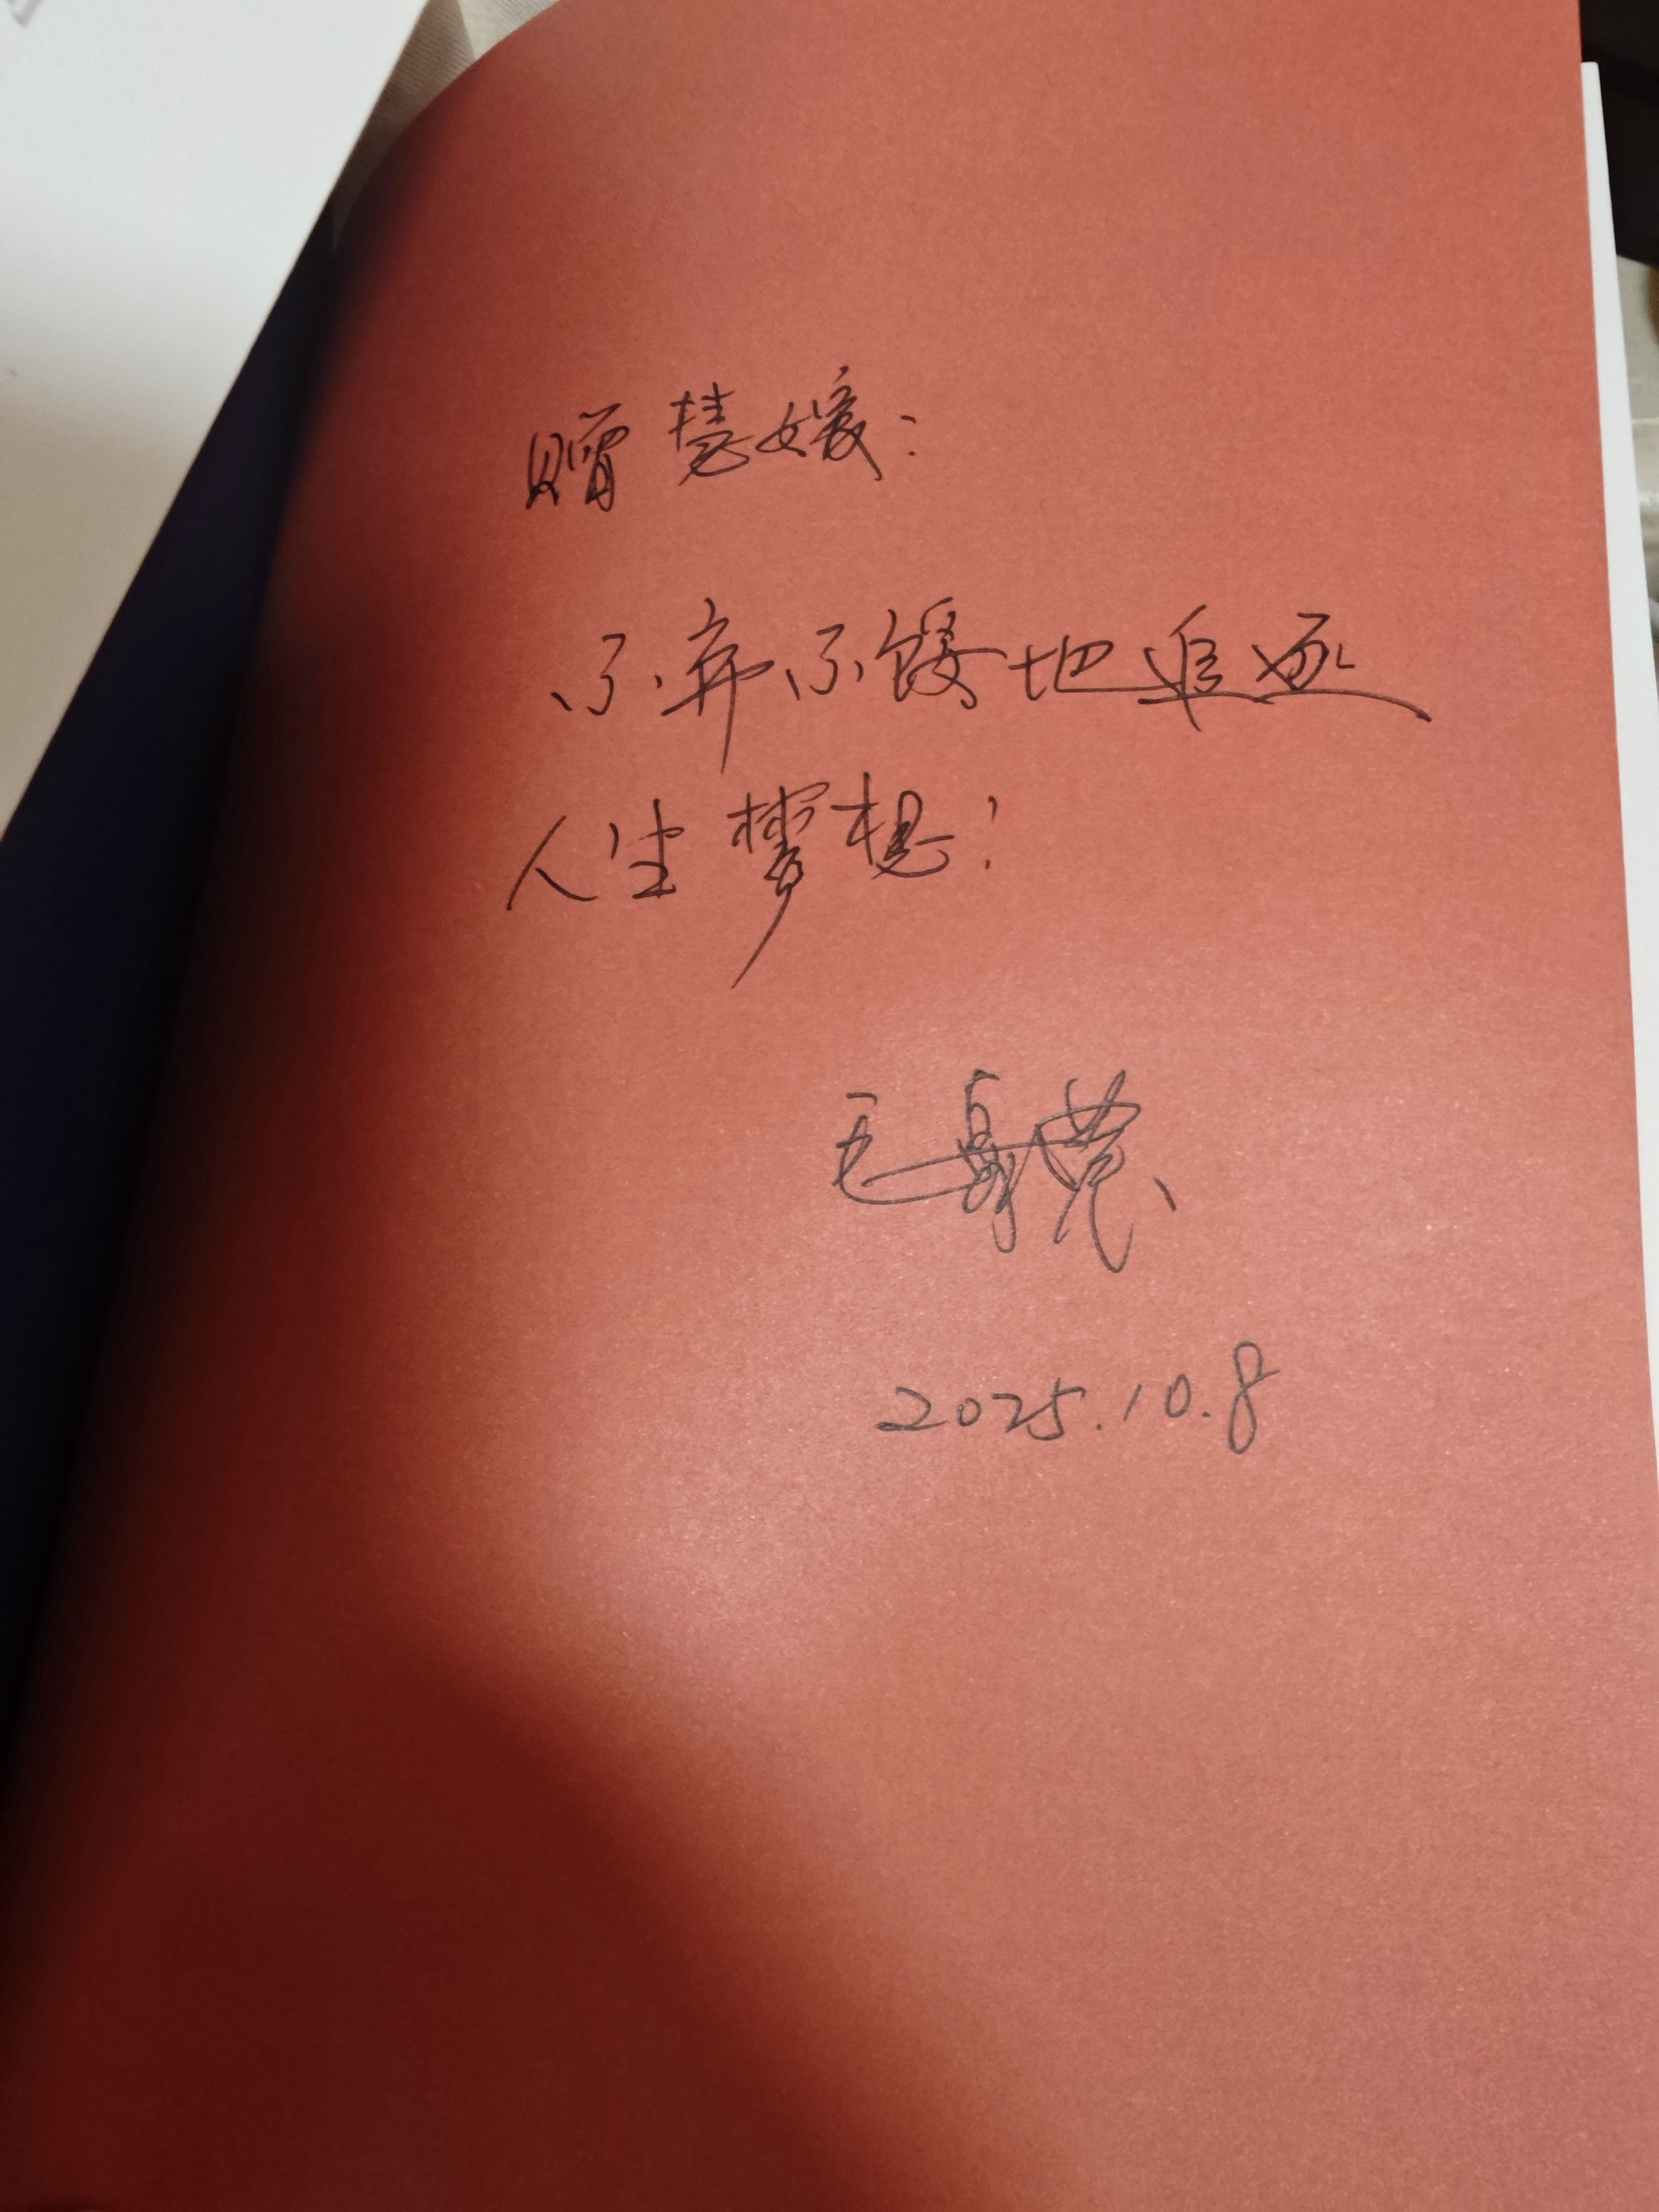 赠慧媛：
不弃不馁地追逐
人生梦想！
毛
2025.10.8